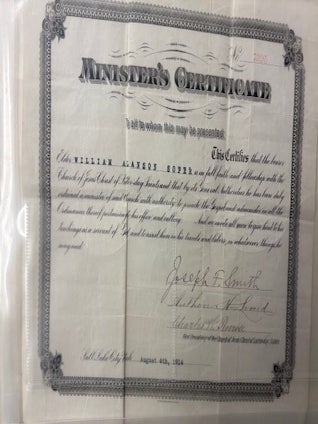 No.
MINISTER'S CERTIFICATE
To all to whom this may be presented:
This Certifies that the bearer
Elder WILLIAM ALANSON SOPER is in full faith and fellowship with the
Church of Jesus Christ of Latter-day Saints and that by its General Authorities he has been duly
of said Church with authority to preach the Gospel and administer in all the
Ordinances thereof pertaining to his office and calling. And we invite all men to give heed to his
teachings as a servant of God, and to assist him in his travels and labors, in whatsoever things he
may need.
Joseph F. Smith
Anthon H. Lund
Charles W. Penrose
First Presidency of the Church of Jesus Christ of Latter-day Saints
Salt Lake City, Utah, August 4th, 1914